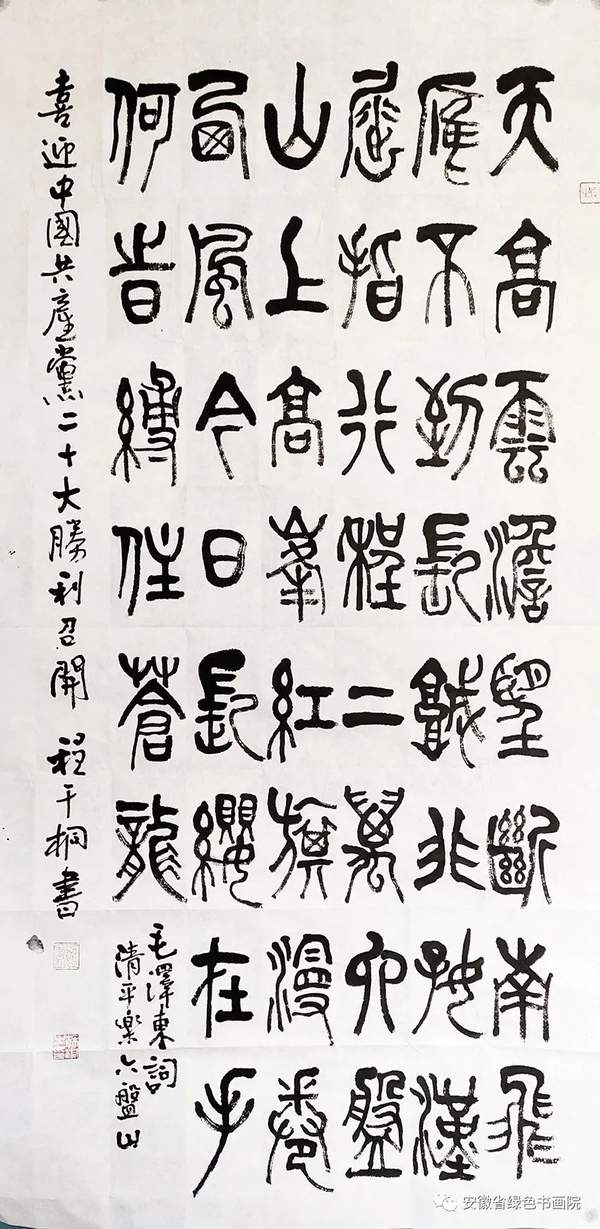 天高雲澹望斷南飛
雁不到長城非好漢
屈指行程二萬六盤
山上高峯紅旗漫卷
西風今日長纓在手
何旹縛住蒼龍
毛澤東詞
清平樂六盤山
喜迎中國共產黨二十大勝利召開 程千桐書
安徽省绿色书画院